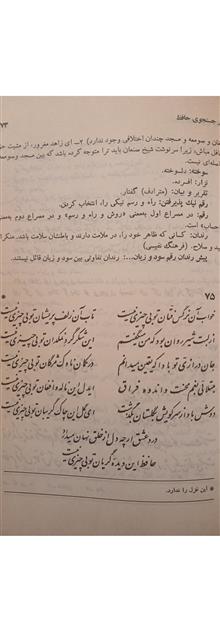 در جستجوی حافظ
۷۳
و صومعه و مسجد چندان اختلافی وجود ندارد) ۲ـ ای زاهد مغرور، از مثبت
مباش، زیرا سرنوشت شیخ صنعان باید ترا متوجه کرده باشد که بین مسجد وصومعه
نیست.
سوخته: دلسوخته.
نزار: افسرده.
تقریر و بیان: (مترادف) گفتار.
رقم نیك پذیرفتن: راه و رسم نیکی را، انتخاب کردن.
رقم: در مصراع اول بمعنی «روش و راه و رسم» و در مصراع دوم بمعنی
است»
رندان: کسانی که ظاهر خود را، در ملامت دارند و باطنشان سلامت باشد. منکر
و صلاح. (فرهنگ نفیسی)
پیش رندان رقم سود و زیان...: رندان تفاوتی بین سود و زیان قائل نیستند.
۷۵ *
خواب آن نرگس فتان تو بی چیزی نیست
تاب آن زلف پریشان تو بی چیزی نیست
از لبت شیر روان بود که من میگفتم
این شکر گرد نمکدان تو بی چیزی نیست
جان درازی تو بادا که یقین میدانم
در کمان ناوک مژگان تو بی چیزی نیست
مبتلائی بغم محنت و اندوه فراق
ایدل این ناله و افغان تو بی چیزی نیست
دوش باد از سر کویش بگلستان بگذشت
ای گل این چاک گریبان تو بی چیزی نیست
درد عشق ار چه دل از خلق نهان میدارد
حافظ این دیده گریان تو بی چیزی نیست
* این غزل را ندارد.